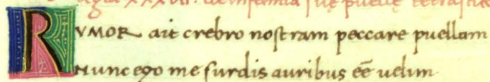 RVMOR ait crebro nostram peccare puellam
Nunc ego me surdis auribus eē velim